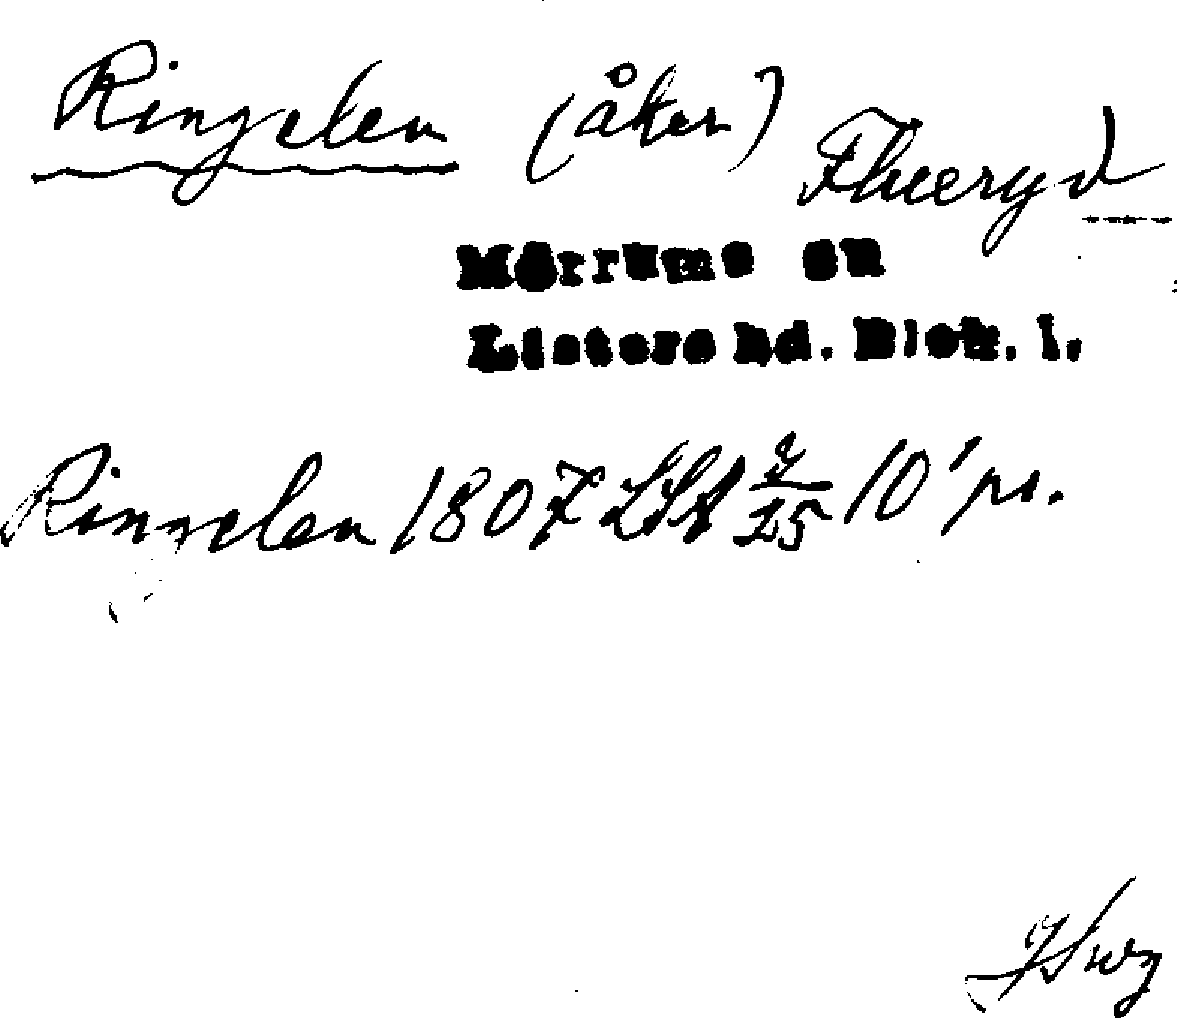 Ringelen (åker) Elleryd
Mörrums sn
Listers hd. Blek. l.
Ringelen 1807 LSA 2/25 10' pr.